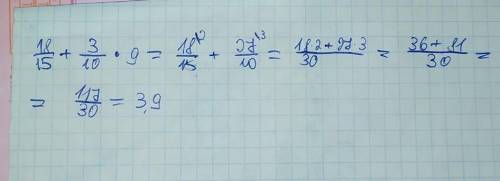 18/15 + 3/10 • 9 = 18\2/15 + 27\3/10 = 18 2 + 27 3/30 = 36 + 81/30 =
= 117/30 = 3,9